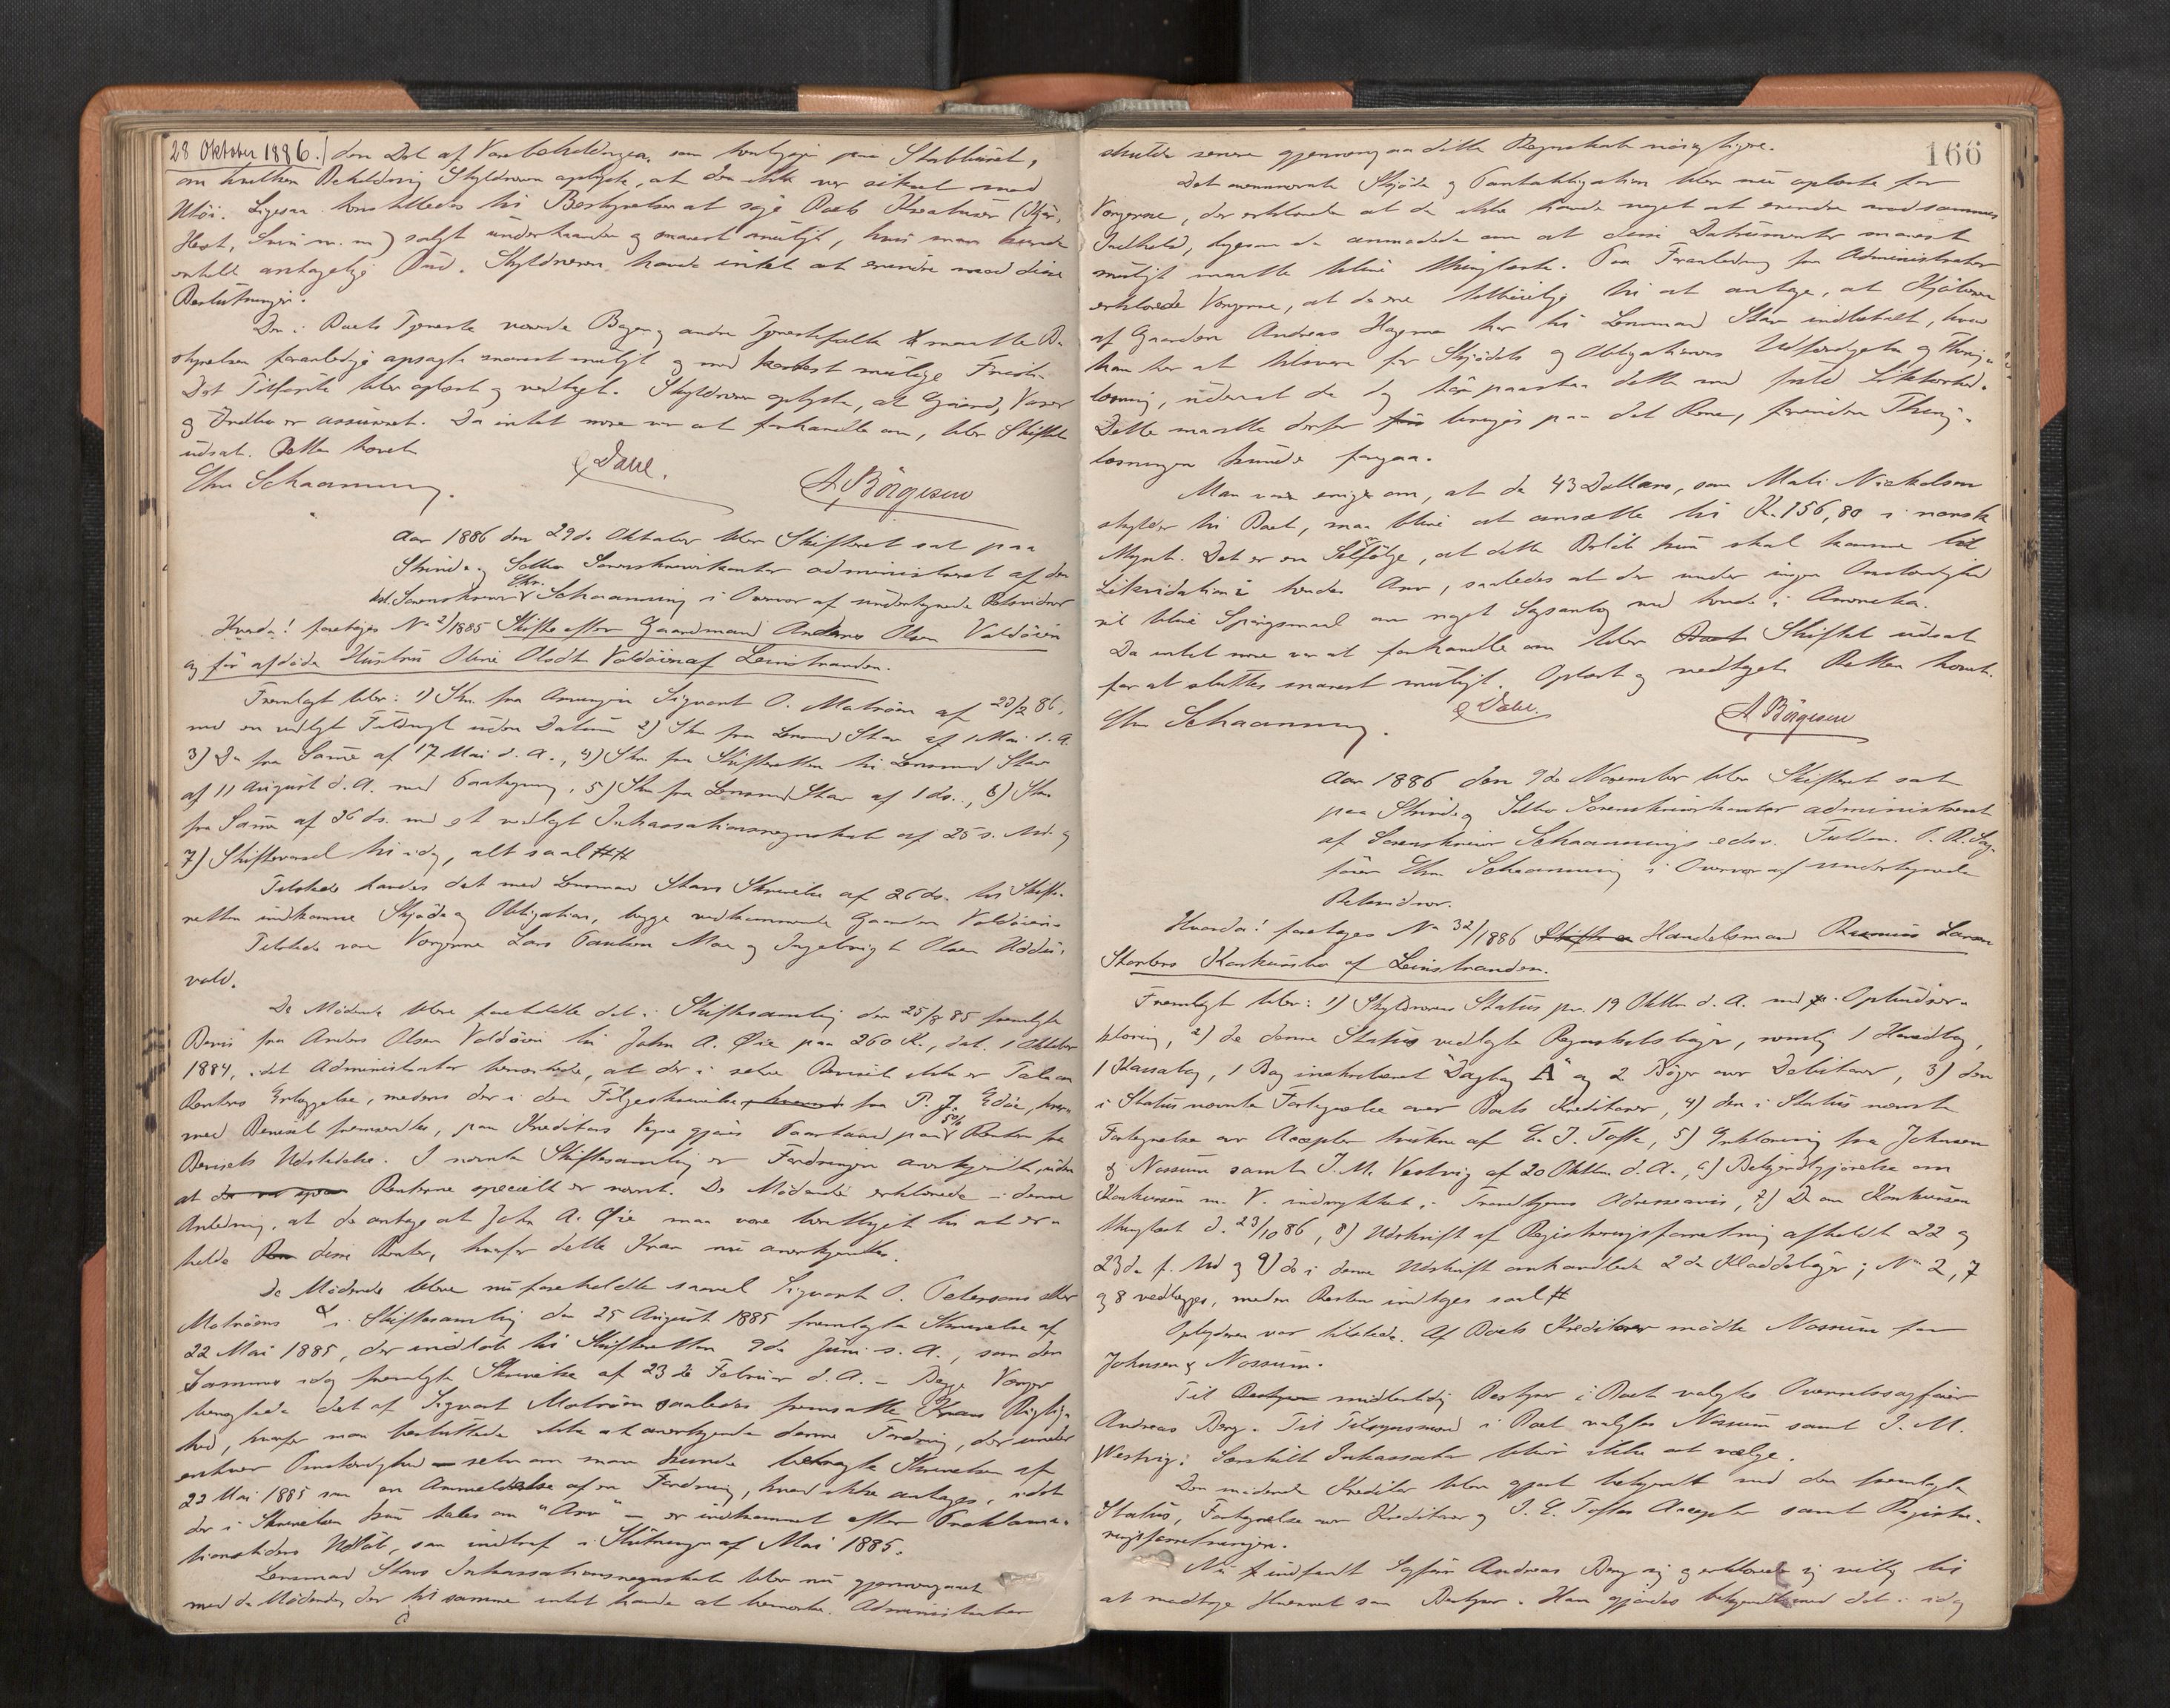 28 Oktober 1886. den Del af Varebeholdningen, som henligger paa Stabburet,
om hvilken Beholdning Skyldneren oplyste, at den ikke var sikret mod
Ligesaa henstilledes til Bestyrelsen at søge Boets Kreaturer (Kjør,
Hest, Svin m. m) solgt underhaanden og snarest muligt, hvis man kunde
erholde antagelige Bud. Skyldneren havde intet at erindre mod disse
Beslutninger.
Den i Boets Tjeneste værende Bager og andre Tjenestefolk maatte Be-
styrelsen foranledige opsagte snarest muligt og med kortest mulige Frist.
Det Tilførte blev oplæst og vedtaget. Skyldneren oplyste, at Gaard, Varer
og Indbo er assureret. Da intet mere var at forhandle om, blev Skiftet
udsat. Retten hævet
Chr Schaanning. Dahl. A. Börgesen
Aar 1886 den 29de Oktober blev Skifteret sat paa
Strinda og Selbu Sorenskriverkontor administreret af den
kst. Sorenskriver Chr. Schaanning i Overvær af undertegnede Retsvidner
Hvorda! foretages No 2/1885 Skifte efter Gaardmand Anders Olsen Valdöien
og før afdøde Hustru Oline Olsdtr Valdöien af Leinstranden.
Fremlagt blev: 1) Skr. fra Arvingen Sigvart O. Moltröen af 23/2 86,
med en vedlagt Fuldmagt uden Datum 2) Skr fra Lensmand Skar af 1 Mai d. A.
3) Do fra Samme af 17 Mai d. A., 4) Skr. fra Skifteretten til Lensmand Skar
af 11 August d. A. med Paategning, 5) Skr fra Lensmand Skar af 1 ds., 6) Skr
fra Samme af 26 ds. med et vedlagt Inkassationsregnskab af 25 s. Md. og
7) Skiftevarsel til idag, alt saal ##
Tilstede havdes det med Lensmand Skars Skrivelse af 26 ds. til Skifte-
retten indkomne Skjøde og Obligation, begge vedkommende Gaarden Valdöien.
Tilstede var Værgerne Lars Paulsen Moe og Ingebrigt Olsen Uddu-
vold.
De Mødende bleve foreholdte det i Skiftesamling den 25/8 85 fremlagte
Bevis fra Anders Olsen Valdöien til John A. Øie paa 260 K., dat. 1 Oktober
1884, idet Administrator bemærkede, at der i selve Beviset ikke er Tale om
Renters Erlæggelse, medens der i den Følgeskrivelse fra P. J. Edöie, hvor-
med Beviset fremsendtes, paa Kreditors Vegne gjøres Paastand paa 5% Renter fra
Bevisets Udstedelse. I nævnte Skiftesamling er Fordringen anerkjendt, uden
at der var Renterne specielt er nævnt. De Mødende erklærede i denne
Anledning, at de antage at John A. Øie maa være berettiget til at er-
holde disse Renter, hvorfor dette Krav nu anerkjendtes.
De Mødende bleve nu foreholdte saavel Sigvart O. Petersens eller
Moltröens i Skiftesamling den 25 August 1885 fremlagte Skrivelse af
22 Mai 1885, der indløb til Skifteretten 9de Juni s. A., som den
Sammes idag fremlagte Skrivelse af 23de Februar d. A. – Begge Værger
benægtede det af Sigvart Moltröen saaledes fremsatte Kravs Rigtig-
hed, hvorfor man besluttede ikke at anerkjende denne Fordring, der under
enhver Omstændighed – selv om man kunde betragte Skrivelsen af
22 Mai 1885 som en Anmeldelse af en Fordring, hvad ikke antages, idet
der i Skrivelsen kun tales om "Arv" – er indkommet efter Proklama-
tionstidens Udløb, som indtraf i Slutningen af Mai 1885.
Lensmand Skars Inkassationsregnskab blev nu gjennemgaaet
med de Mødende, der til samme intet havde at bemærke. Administrator
166
skulde senere gjennemgaa dette Regnskab nøiagtigere.
Det ovennævnte Skjøde og Pantobligation blev nu oplæste for
Værgerne, der erklærede at de ikke havde noget at erindre mod sammes
Indhold, ligesom de anmodede om at disse Dokumenter snarest
muligt maatte blive thinglæste. Paa Foranledning fra Administrator
erklærede Værgerne, at de ere tilbøielige til at antage, at Kjøberen
af Gaarden Andreas Hagemo har til Lensmand Skar indbetalt, hvad
han har at tilsvare for Skjødets og Obligationens Udfærdigelse og Thing-
læsning, uden at de dog tør paastaa dette med fuld Sikkerhed.
Dette maatte derfor bringes paa det Rene, forinden Thing-
læsningen kunde foregaa.
Man var enige om, at de 43 Dollars, som Mali Nickolson
skylder til Boet, maa blive at ansætte til K. 156,80 i norsk
Mynt. Det er en Selvfølge, at dette Beløb kun skal komme til
Likvidation i hendes Arv, saaledes at der under ingen Omstændighed
vil blive Spørgsmaal om noget Søgsmaal mod hende i Amerika.
Da intet mere var at forhandle om blev Boet Skiftet udsat
for at sluttes snarest muligt. Oplæst og vedtaget. Retten hævet.
Chr Schaanning. Dahl. A. Börgesen
Aar 1886 den 9de November blev Skifteret sat
paa Strinda og Selbu Sorenskriverkontor administreret
af Sorenskriver Schaannings edsv. Fuldm. O. R. Sag-
fører Chr Schaanning i Overvær af undertegnede
Retsvidner.
Hvorda! foretages No 32/1886 Skifte Handelsmand Rasmus Larsen
Storbros Konkursbo af Leinstranden.
Fremlagt blev: 1) Skyldnerens Status pr. 19 Oktbr d. A. med
klæring, 2) de denne Status vedlagte Regnskabsbøger, nemlig 1 Hovedbog,
1 Kassabog, 1 Bog inskriberet Dagbog A og 2 Bøger over Debitorer, 3) den
i Status nævnte Fortegnelse over Boets Kreditorer, 4) den i Status nævnte
Fortegnelse over Accepter trukne af E. J. Tofte, 5) Erklæring fra Johnsen
& Nossum samt J. M. Vestvig af 20 Oktbr d. A., 6) Bekjendtgjørelse om
Konkursen m. V. indrykket i Trondhjems Adresseavis, 7) Do om Konkursen
thinglæst d. 23/10 86, 8) Udskrift af Registreringsforretning afholdt 22 og
23de f. Md og 9) de i denne Udskrift omhandlede 2de Kladdebøger; No 2, 7
og 8 vedlægges, medens Resten indtages saal #
Opbyderen var tilstede. Af Boets Kreditorer mødte Nossum for
Johnsen & Nossum.
Til midlertidig Bestyrer i Boet valgtes Overretssagfører
Andreas Berg. Til Tilsynsmænd i Boet valgtes Nossum samt J. M.
Westvig; Særskilt Inkassator blev ikke at vælge.
Den mødende Kreditor blev gjort bekjendt med den fremlagte
Status, Fortegnelse over Kreditorer og J. E. Toftes Accepter samt Registre-
ringsforretningen.
Nu indfandt Sagfører Andreas Berg sig og erklærede sig villig til
at modtage Hvervet som Bestyrer. Han gjordes bekjendt med det i idag